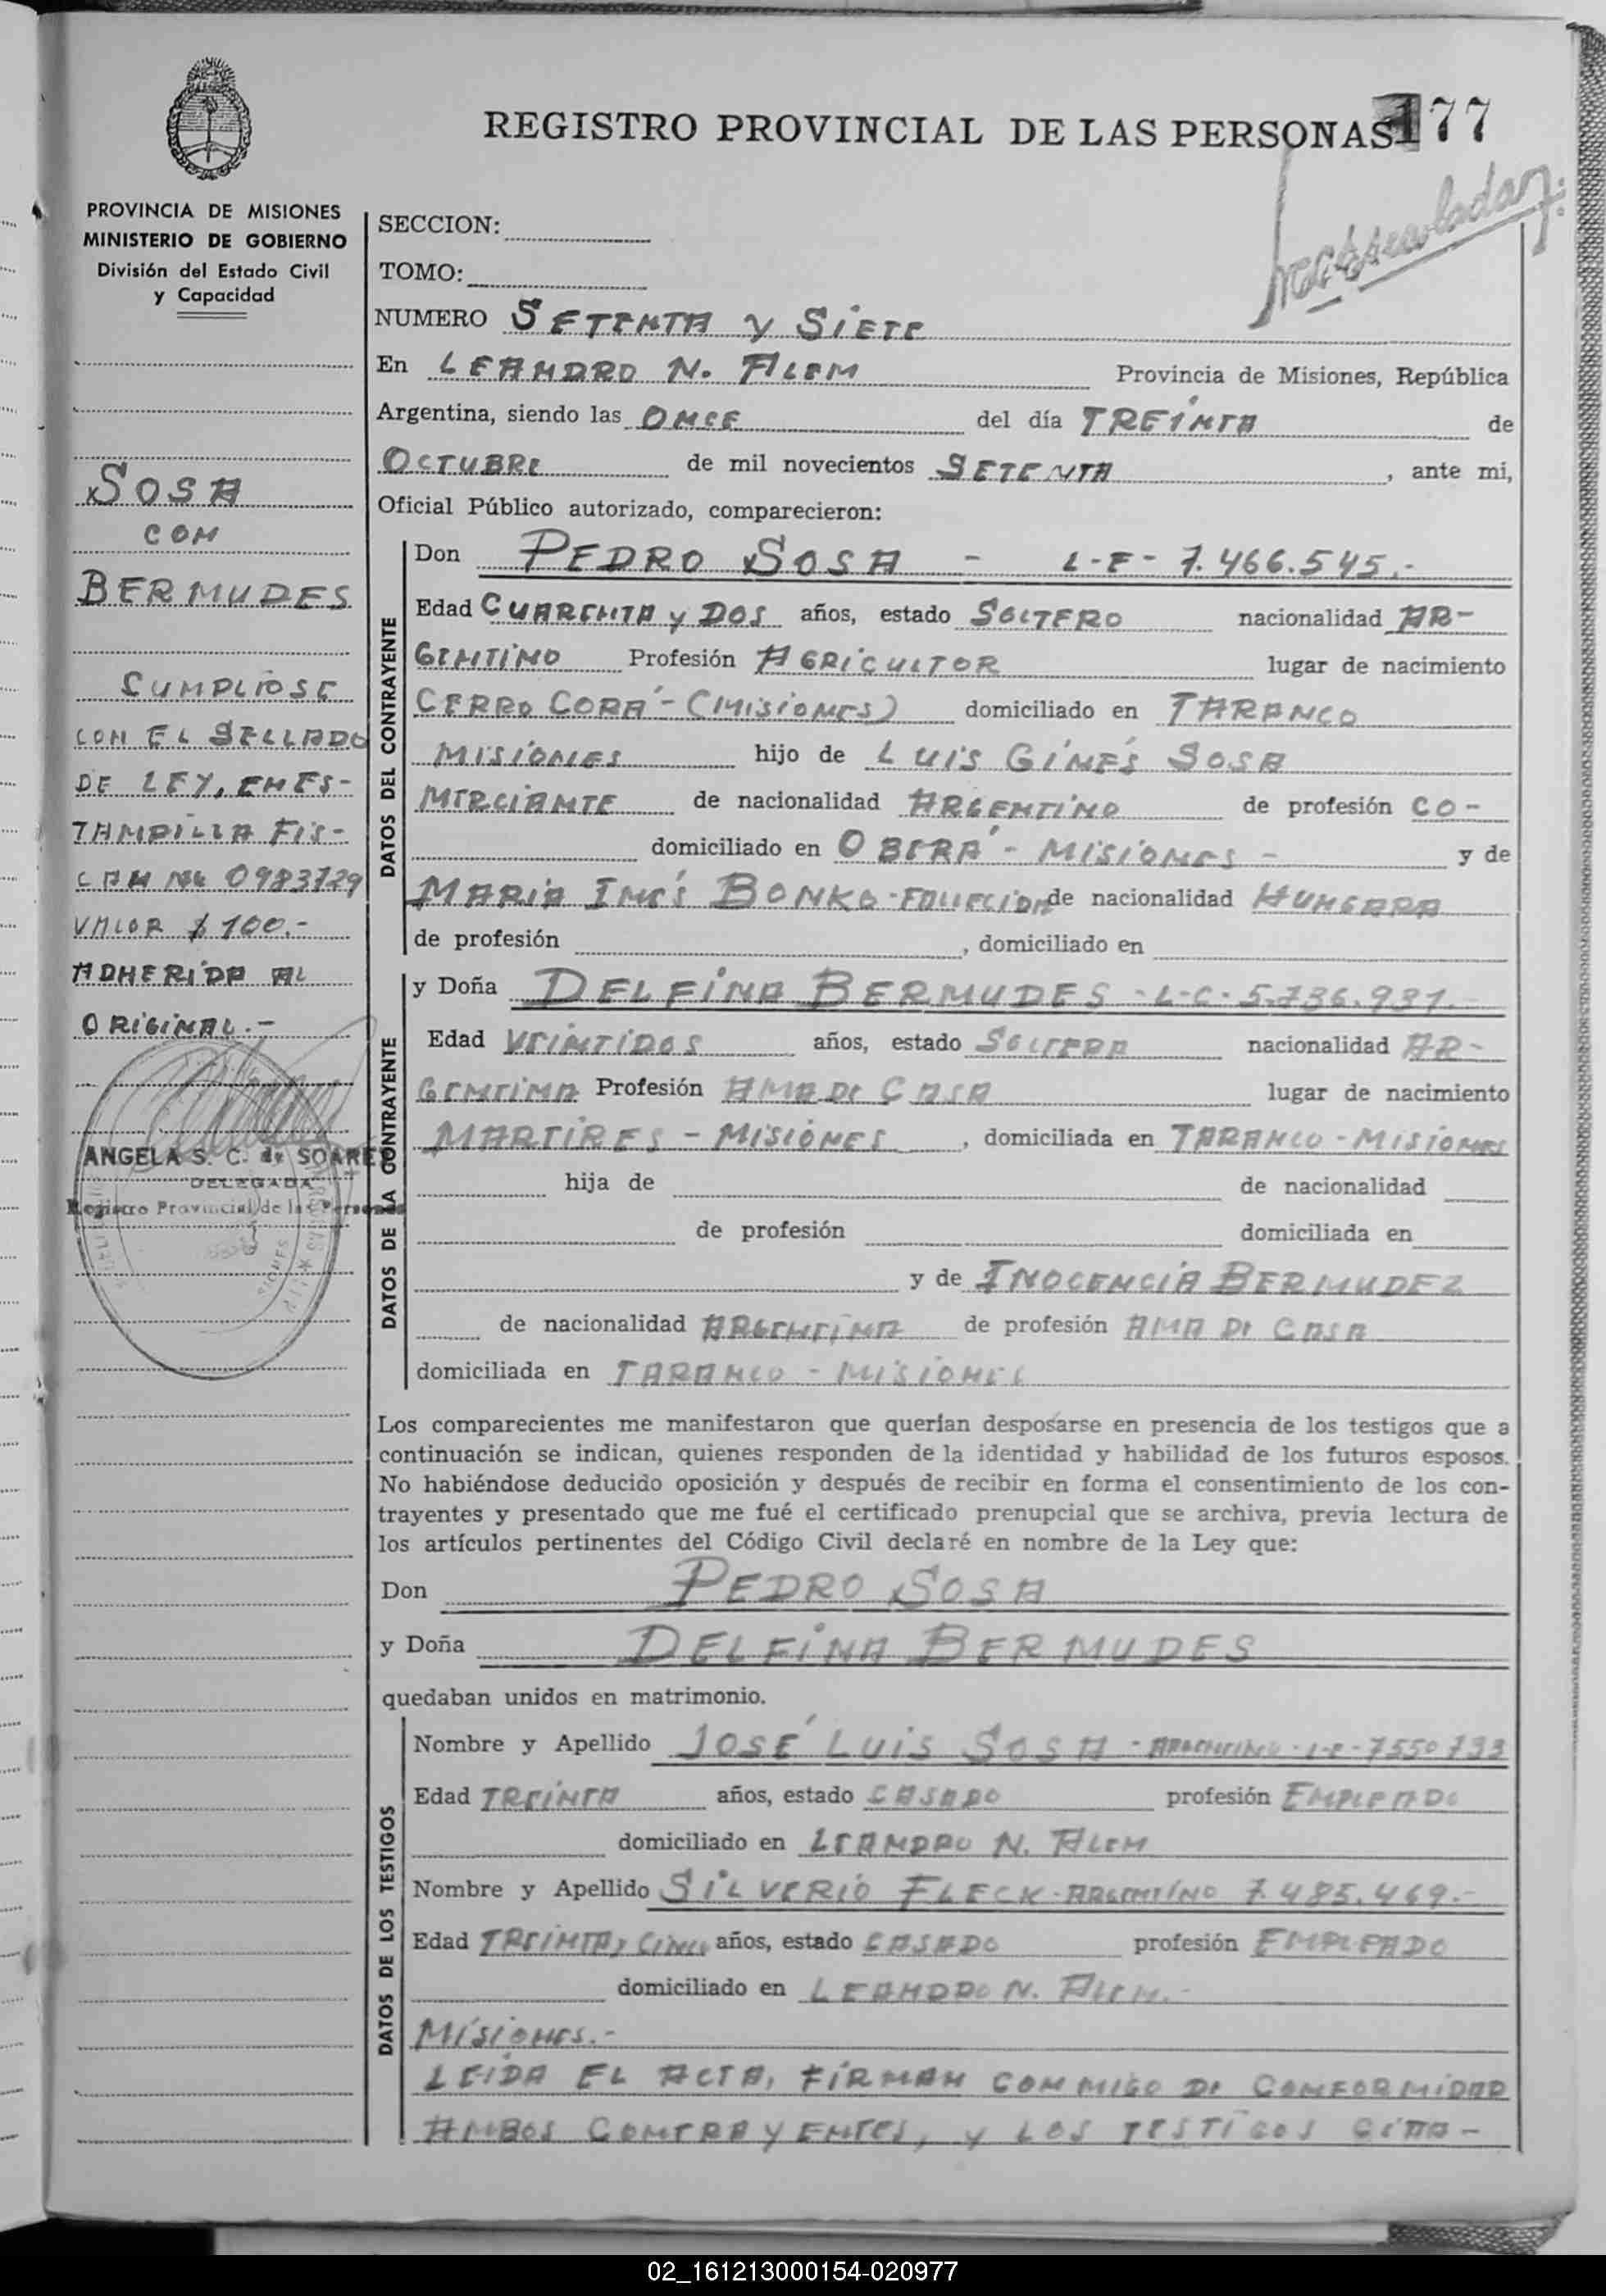 REGISTRO PROVINCIAL DE LAS PERSONAS 177
PROVINCIA DE MISIONES
MINISTERIO DE GOBIERNO
División del Estado Civil
y Capacidad
SOSA
COM
BERMUDES
CUMPLIOSE
CON EL SELLADO
DE LEY, EM ES-
TAMPILLA FIS-
CAM No 0983729
VALOR $ 100.-
ADHERIDA AL
ORIGINAL.-
ANGELA S. C. de SOARES
DELEGADA
Registro Provincial de las Personas
SECCION:
TOMO:
NUMERO SETENTA Y SIETE
En LEANDRO N. ALEM Provincia de Misiones, República
Argentina, siendo las ONCE del día TREINTA de
OCTUBRE de mil novecientos SETENTA, ante mi,
Oficial Público autorizado, comparecieron:
DATOS DEL CONTRAYENTE
Don PEDRO SOSA - L-E- 7.466.545.-
Edad CUARENTA Y DOS años, estado SOLTERO nacionalidad AR-
GENTINO Profesión AGRICULTOR lugar de nacimiento
CERRO CORÁ - (MISIONES) domiciliado en TARANCO
MISIONES hijo de LUIS GINÉS SOSA
MERCIANTE de nacionalidad ARGENTINO de profesión CO-
domiciliado en OBERÁ - MISIONES - y de
MARIA INÉS BONKO - FALLECIDA de nacionalidad HUNGARA
de profesión , domiciliado en
DATOS DE LA CONTRAYENTE
y Doña DELFINA BERMUDES - L-C- 5.736.931.-
Edad VEINTIDOS años, estado SOLTERA nacionalidad AR-
GENTINA Profesión AMA DE CASA lugar de nacimiento
MARTIRES - MISIONES , domiciliada en TARANCO - MISIONES
hija de de nacionalidad
de profesión domiciliada en
y de INOCENCIA BERMUDEZ
de nacionalidad ARGENTINA de profesión AMA DE CASA
domiciliada en TARANCO - MISIONES
Los comparecientes me manifestaron que querían desposarse en presencia de los testigos que a
continuación se indican, quienes responden de la identidad y habilidad de los futuros esposos.
No habiéndose deducido oposición y después de recibir en forma el consentimiento de los con-
trayentes y presentado que me fué el certificado prenupcial que se archiva, previa lectura de
los artículos pertinentes del Código Civil declaré en nombre de la Ley que:
Don PEDRO SOSA
y Doña DELFINA BERMUDES
quedaban unidos en matrimonio.
DATOS DE LOS TESTIGOS
Nombre y Apellido JOSÉ LUIS SOSA - ARGENTINO - L-E- 7550733
Edad TREINTA años, estado CASADO profesión EMPLEADO
domiciliado en LEANDRO N. ALEM
Nombre y Apellido SILVERIO FLECK - ARGENTINO 7.485.469.-
Edad TREINTA y CINCO años, estado CASADO profesión EMPLEADO
domiciliado en LEANDRO N. ALEM.-
MISIONES.-
LEIDA EL ACTA, FIRMAN CONMIGO DE CONFORMIDAD
AMBOS CONTRAYENTES, y LOS TESTIGOS CITA-
02_161213000154-020977